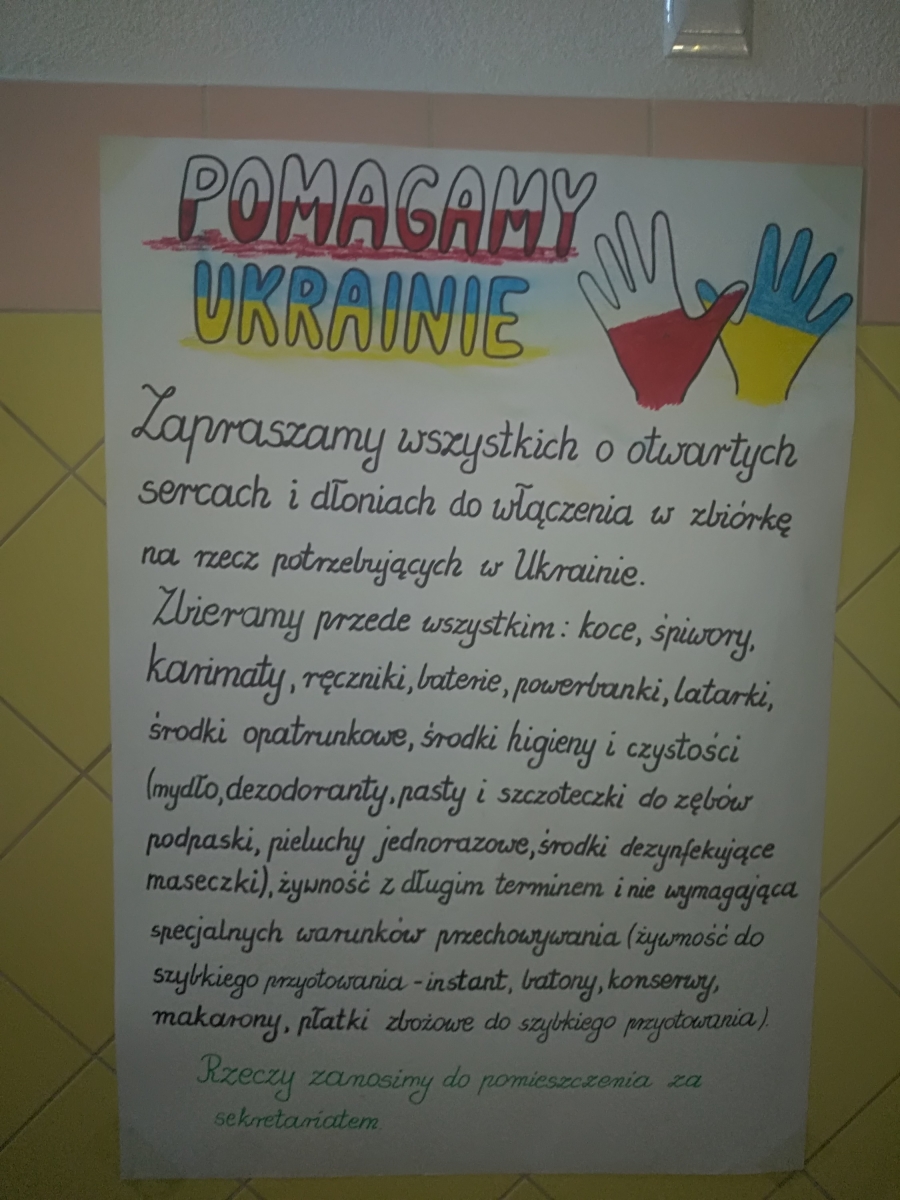 POMAGAMY
UKRAINIE
Zapraszamy wszystkich o otwartych
sercach i dłoniach do włączenia w zbiórkę
na rzecz potrzebujących w Ukrainie.
Zbieramy przede wszystkim: koce, śpiwory,
karimaty, ręczniki, baterie, powerbanki, latarki,
środki opatrunkowe, środki higieny i czystości
(mydło, dezodoranty, pasty i szczoteczki do zębów
podpaski, pieluchy jednorazowe, środki dezynfekujące
maseczki), żywność z długim terminem i nie wymagająca
specjalnych warunków przechowywania (żywność do
szybkiego przyotowania - instant, batony, konserwy,
makarony, płatki zbożowe do szybkiego przyotowania).
Rzeczy zanosimy do pomieszczenia za
sekretariatem